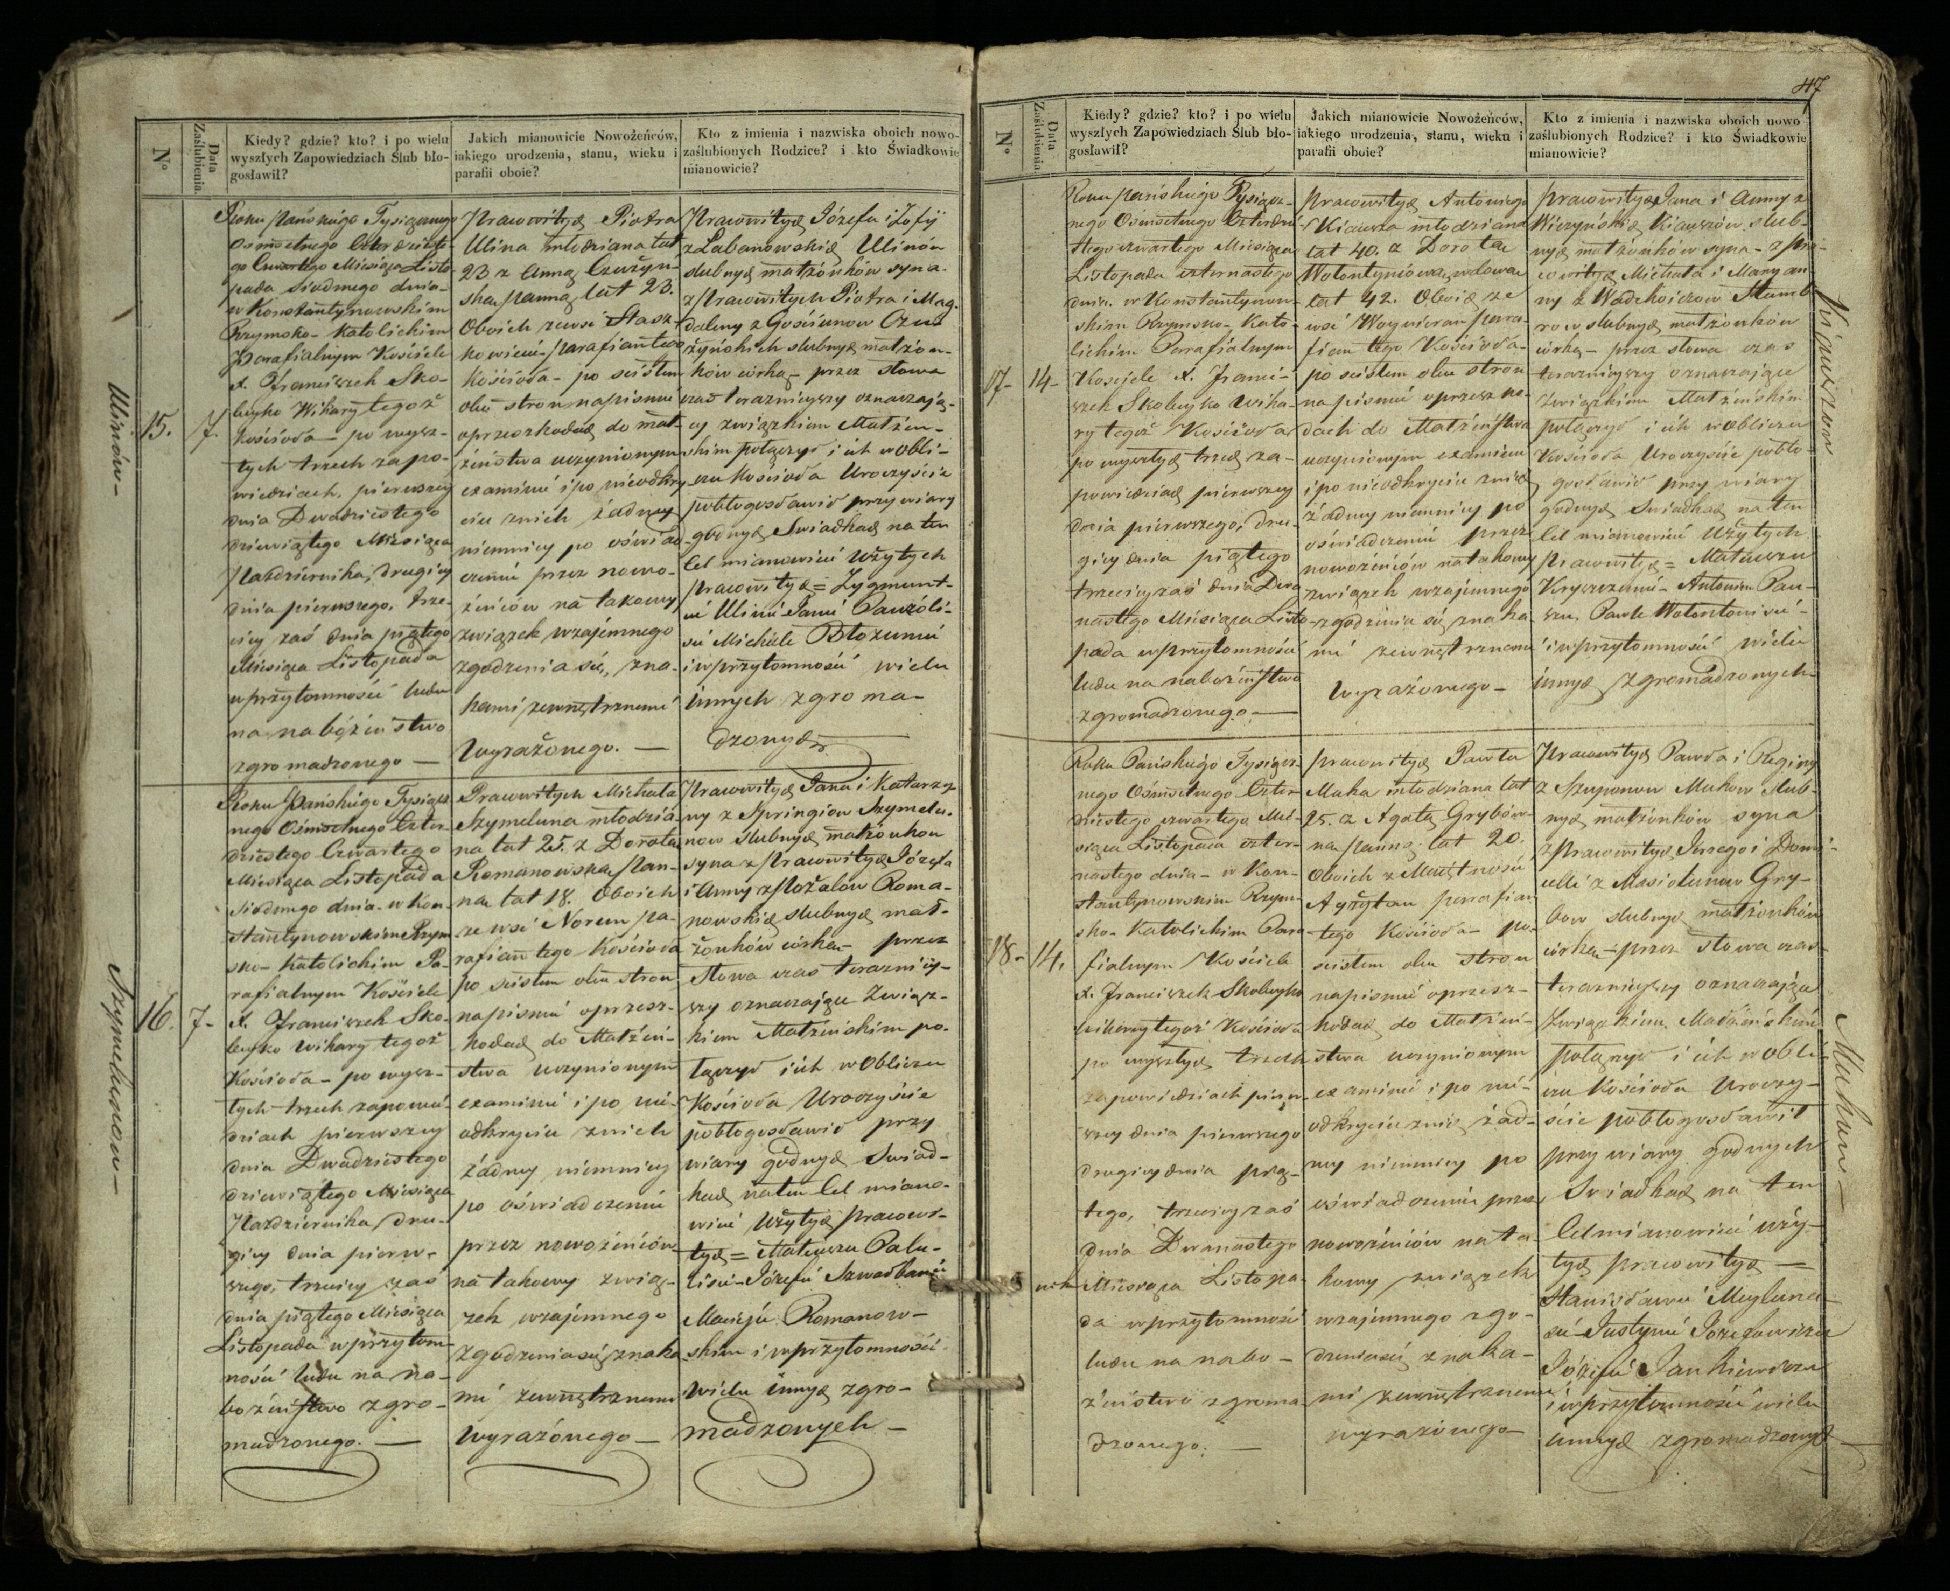 47
N°
Data Zaślubienia.
Kiedy? gdzie? kto? i po wielu
wyszłych Zapowiedziach Ślub bło-
gosławił?
Jakich mianowicie Nowożeńców,
iakiego urodzenia, stanu, wieku i
parafii oboie?
Kto z imienia i nazwiska oboich nowo-
zaślubionych Rodzice? i kto Świadkowie
mianowicie?
Ulinów-
15.
7.
Roku Pańskiego Tysiącznego
Osmsetnego Czterdzieste-
go Czwartego Miesiąca Listo-
pada Siodmego dnia-
w Konstantynowskim
Rzymsko-Katolickim
Parafialnym Kościele
X. Franciszek Sko-
beyko Wikary tegoż
Kościoła - po wysz-
łych trzech zapo-
wiedziach, pierwszey
dnia Dwudziestego
dziewiątego Miesiąca
Października, drugiey
dnia pierwszego, trze-
ciey zaś dnia piątego
Miesiąca Listopada
w przytomności ludu
na nabożeństwo
zgromadzonego —
Pracowitych Piotra
Ulina młodziana lat
23 z Anną Czużyn-
ską panną lat 23.
Oboich zewsi Stasz-
kowicui - Parafian tego
Kościoła - po ścisłem
obu stron na pismie
o przeszkodach do mał-
żeństwa uczynionym
examinie i po nieodkry-
ciu z nich żadney
niemniey po oświad-
czeniu przez nowo-
żeńców na takowy
związek wzajemnego
zgodzenia się, zna-
kami zewnętrznemi
wyrażonego. —
Pracowitych Józefa i Zofij
z Labanowskich Ulinów
ślubnych małżonków syna-
z Pracowitych Piotra i Mag-
daleny z Gościunow Czu-
żyńskich ślubnych małżon-
ków córką - przez słowa
czas teraznieyszy oznaczają-
cy związkiem Małżeń-
skim połączył i ich w obli-
czu Kościoła Uroczyście
pobłogosławił przy wiary
godnych Swiadkach na ten
cel mianowicie użytych
Pracowitych = Zygmunt-
cie Ulinie Janie Pauzoli-
sie Michale Błozunie
i w przytomności wielu
innych zgroma-
dzonych
Szymelunow-
16.
7-
Roku Pańskiego Tysiącz-
nego Osmsetnego Czter-
dziestego Czwartego
Miesiąca Listopada
siodmego dnia - w Kon-
stantynowskim Rzym-
sko-Katolickim Pa-
rafialnym Kościele
X. Franciszek Sko-
beyko Wikary tegoż
Kościoła - po wysz-
łych trzech zapowie-
dziach pierwszey
dnia Dwudziestego
dziewiątego Miesiąca
Października, dru-
giey dnia pierw-
szego, trzeciey zaś
dnia piątego Miesiąca
Listopada w przytom-
ności ludu na na-
bożeństwo zgro-
madzonego. —
Pracowitych Michała
Szymeluna młodzia-
na lat 25. z Dorotą
Romanowską Pan-
ną lat 18. Oboich
ze wsi Norem pa-
rafian tego Kościoła
po ścisłem obu stron
na pismie o przesz-
kodach do Małżeń-
stwa uczynionym
examinie i po nie-
odkryciu z nich
żadney niemniey
po oświadczeniu
przez nowożeńców
na takowy zwią-
zek wzajemnego
zgodzenia się, znaka-
mi zewnętrznemi
wyrażonego —
Pracowitych Jana i Katarzy-
ny z Springiow Szymelu-
now ślubnych małżonkow
syna z Pracowitych Józefa
i Anny z Pożalow Roma-
nowskich ślubnych mał-
żonków córką - przez
słowa czas teraznieй-
szy oznaczające Związ-
kiem Małżeńskim po-
łączył i ich w Obliczu
Kościoła Uroczyście
pobłogosławił przy
wiary godnych Swiad-
kach na ten Cel miano-
wicie użytych Pracowi-
tych = Mateuszu Palu-
lisie - Józefie Szwadbarcie
Macieju Romanow-
skim i w przytomności
wielu innych zgro-
madzonych —
N°
Data Zaślubienia.
Kiedy? gdzie? kto? i po wielu
wyszłych Zapowiedziach Ślub bło-
gosławił?
Jakich mianowicie Nowożeńców,
iakiego urodzenia, stanu, wieku i
parafii oboie?
Kto z imienia i nazwiska oboich nowo
zaślubionych Rodzice? i kto Świadkowie
mianowicie?
17-
14-
Roku Pańskiego Tysiącz-
nego Osmsetnego Czterdzie-
stego czwartego Miesiąca
Listopada czternastego
dnia. w Konstantynow-
skim Rzymsko-Kato-
lickim Parafialnym
Kościele X. Franci-
szek Skobeyko Wika-
ry tegoż Kościoła
po wyszłych trzech za-
powiedziach pierwszey
dnia pierwszego, dru-
giey dnia piątego
trzeciey zaś dnia Dwu-
nastego Miesiąca Listo-
pada w przytomności
ludu na nabożeństwo
zgromadzonego —
Pracowitych Antoniego
Kiausza młodziana
lat 40. z Dorotą
Wołontyniową, wdową
lat 42. Oboie ze
wsi Woyniwan para-
fian tego Kościoła-
po ścisłem obu stron
na pismie o przeszko-
dach do Małżeństwa
uczynionym examinie
i po nieodkryciu z nich
żadney niemniey po
oświadczeniu przez
nowożeńców na takowy
związek wzajemnego
zgodzenia się znaka-
mi zewnętrznemi
wyrażonego —
Pracowitych Jana i Anny z
Wiczyńskich Kiauszów ślub-
nych małżonków syna - z Pra-
cowitych Michała i Maryan-
ny z Wadeykiszow Stamb-
row ślubnych małżonków
córką - przez słowa czas
teraznieyszy oznaczające
związkiem Małżeńskim
połączył i ich w obliczu
Kościoła Uroczyście pobło-
gosławił przy wiary
godnych Swiadkach na ten
cel mianowicie Użytych
Pracowitych = Mateuszu
Kryszczunie - Antonim Pau-
szu, Pawle Wołontowiczu-
i w przytomności wielu
innych zgromadzonych-
Kiauszow
18-
14.
Roku Pańskiego Tysiącz-
nego Osmsetnego Czter-
dziestego czwartego Mie-
siąca Listopada czter-
nastego dnia - w Kon-
stantynowskim Rzym-
sko-Katolickim Para-
fialnym Kościele
X. Franciszek Skobeyko
wikary tegoż Kościoła
po wyszłych trzech
zapowiedziach pierw-
szey dnia pierwszego
drugiey dnia pią-
tego, trzeciey zaś
dnia Dwunastego
Miesiąca Listopa-
da w przytomności
ludu na nabo-
żeństwo zgroma-
dzonego. —
Pracowitych Pawła
Muka młodziana lat
25. z Agatą Grybów-
ną Panną, lat 20.
Oboich z Maiętności
Ayżytan parafian
tego Kościoła - po
ścisłem obu stron
na pismie o przesz-
kodach do Małżeń-
stwa uczynionym
examinie i po nie-
odkryciu z nich żad-
ney niemniey po
oświadczeniu przez
nowożeńców na ta-
kowy związek
wzajemnego zgo-
dzenia się znaka-
mi zewnętrznemi
wyrażonego
Pracowitych Pawła i Reginy
z Szuponow Mukow Ślub-
nych małżonków syna
z Pracowitych Jerzego i Domi-
celli z Masiulunow Gry-
bow ślubnych małżonków
córką - przez słowa czas
teraznieyszy oznaczające
Związkiem Małżeńskim
połączył i ich w obli-
czu Kościoła Uroczy-
ście pobłogosławił
przy wiary godnych
Swiadkach na ten
Cel mianowicie uży-
tych pracowitych —
Stanisławie Meyluna-
sie - Justynie Józefowiczu
Józefie Jankiewiczu
i w przytomności wielu
innych zgromadzonych
Mukow-